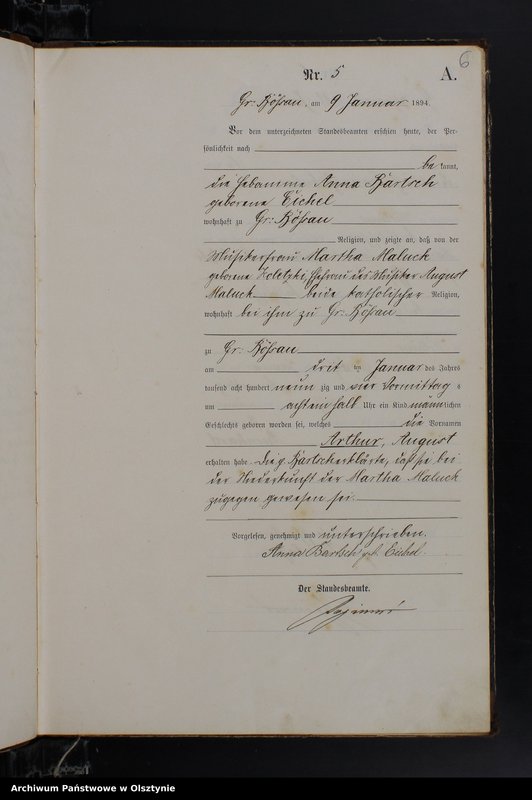 6
Nr. 5 A.
Gr: Bößau, am 9 Januar 1894.
Vor dem unterzeichneten Standesbeamten erschien heute, der Per-
sönlichkeit nach
be kannt,
die Hebamme Anna Bartsch
geborene Eichel
wohnhaft zu Gr: Bößau
Religion, und zeigte an, daß von der
Musikerfrau Martha Maluck
geborene Ehefrau des Musiker August
Maluck beide katholischer Religion,
wohnhaft bei ihm zu Gr: Bößau
zu Gr: Bößau
am ten Januar des Jahres
tausend acht hundert neun zig und vier Vormittag s
um acht ein halb Uhr ein Kind männ lichen
Geschlechts geboren worden sei, welches die Vornamen
Arthur, August
erhalten habe. Die p. Bartsch erklärte, daß sie bei
der Niederkunft der Martha Maluck
zugegen gewesen sei.
Vorgelesen, genehmigt und unterschrieben.
Anna Bartsch geb. Eichel.
Der Standesbeamte.
Archiwum Państwowe w Olsztynie